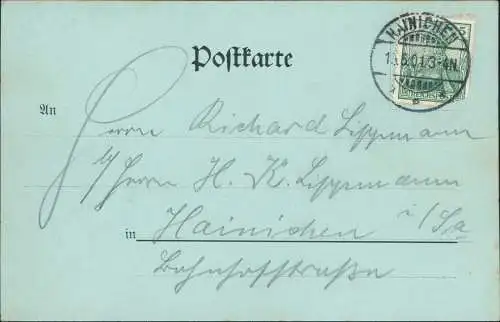 HAINICHEN
13.6.01.3-4N.
Postkarte
An
Herrn Richard Lippmann
b/ Herrn H. K. Lippmann
in Hainichen i/Sa
Bahnhofstraße